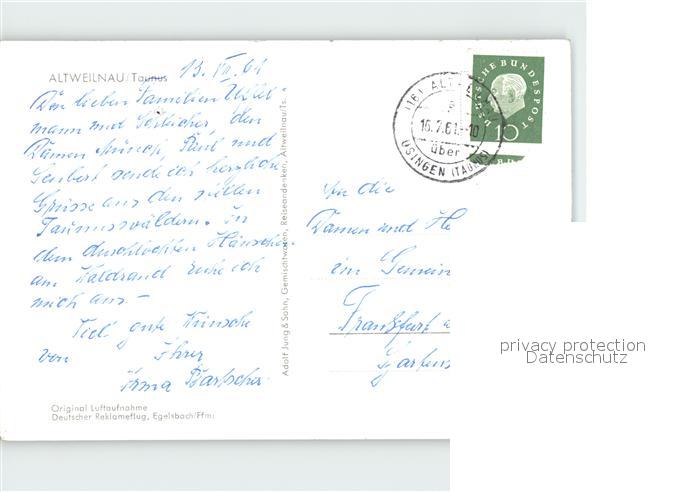 ALTWEILNAU/Taunus 13. VII. 61
Den lieben Familien
mann und Schleicher, den
Damen Paul und
Seubert sende ich herzliche
Grüsse aus den stillen
Taunuswäldern. In
dem Häuschen
am Waldrand ruhe ich
mich aus –
Viel gute Wünsche
von Ihrer
Irma Bartscher
Original Luftaufnahme
Deutscher Reklameflug, Egelsbach/Ffm.
Adolf Jung & Sohn, Gemischtwaren, Reiseandenken, Altweilnau/Ts.
(16) ALT
16.7.61.-10
über
USINGEN (TAUNUS)
DEUTSCHE BUNDESPOST
10
An die
Damen und He
im Gemein
Frankfurt a
Gartens
privacy protection
Datenschutz